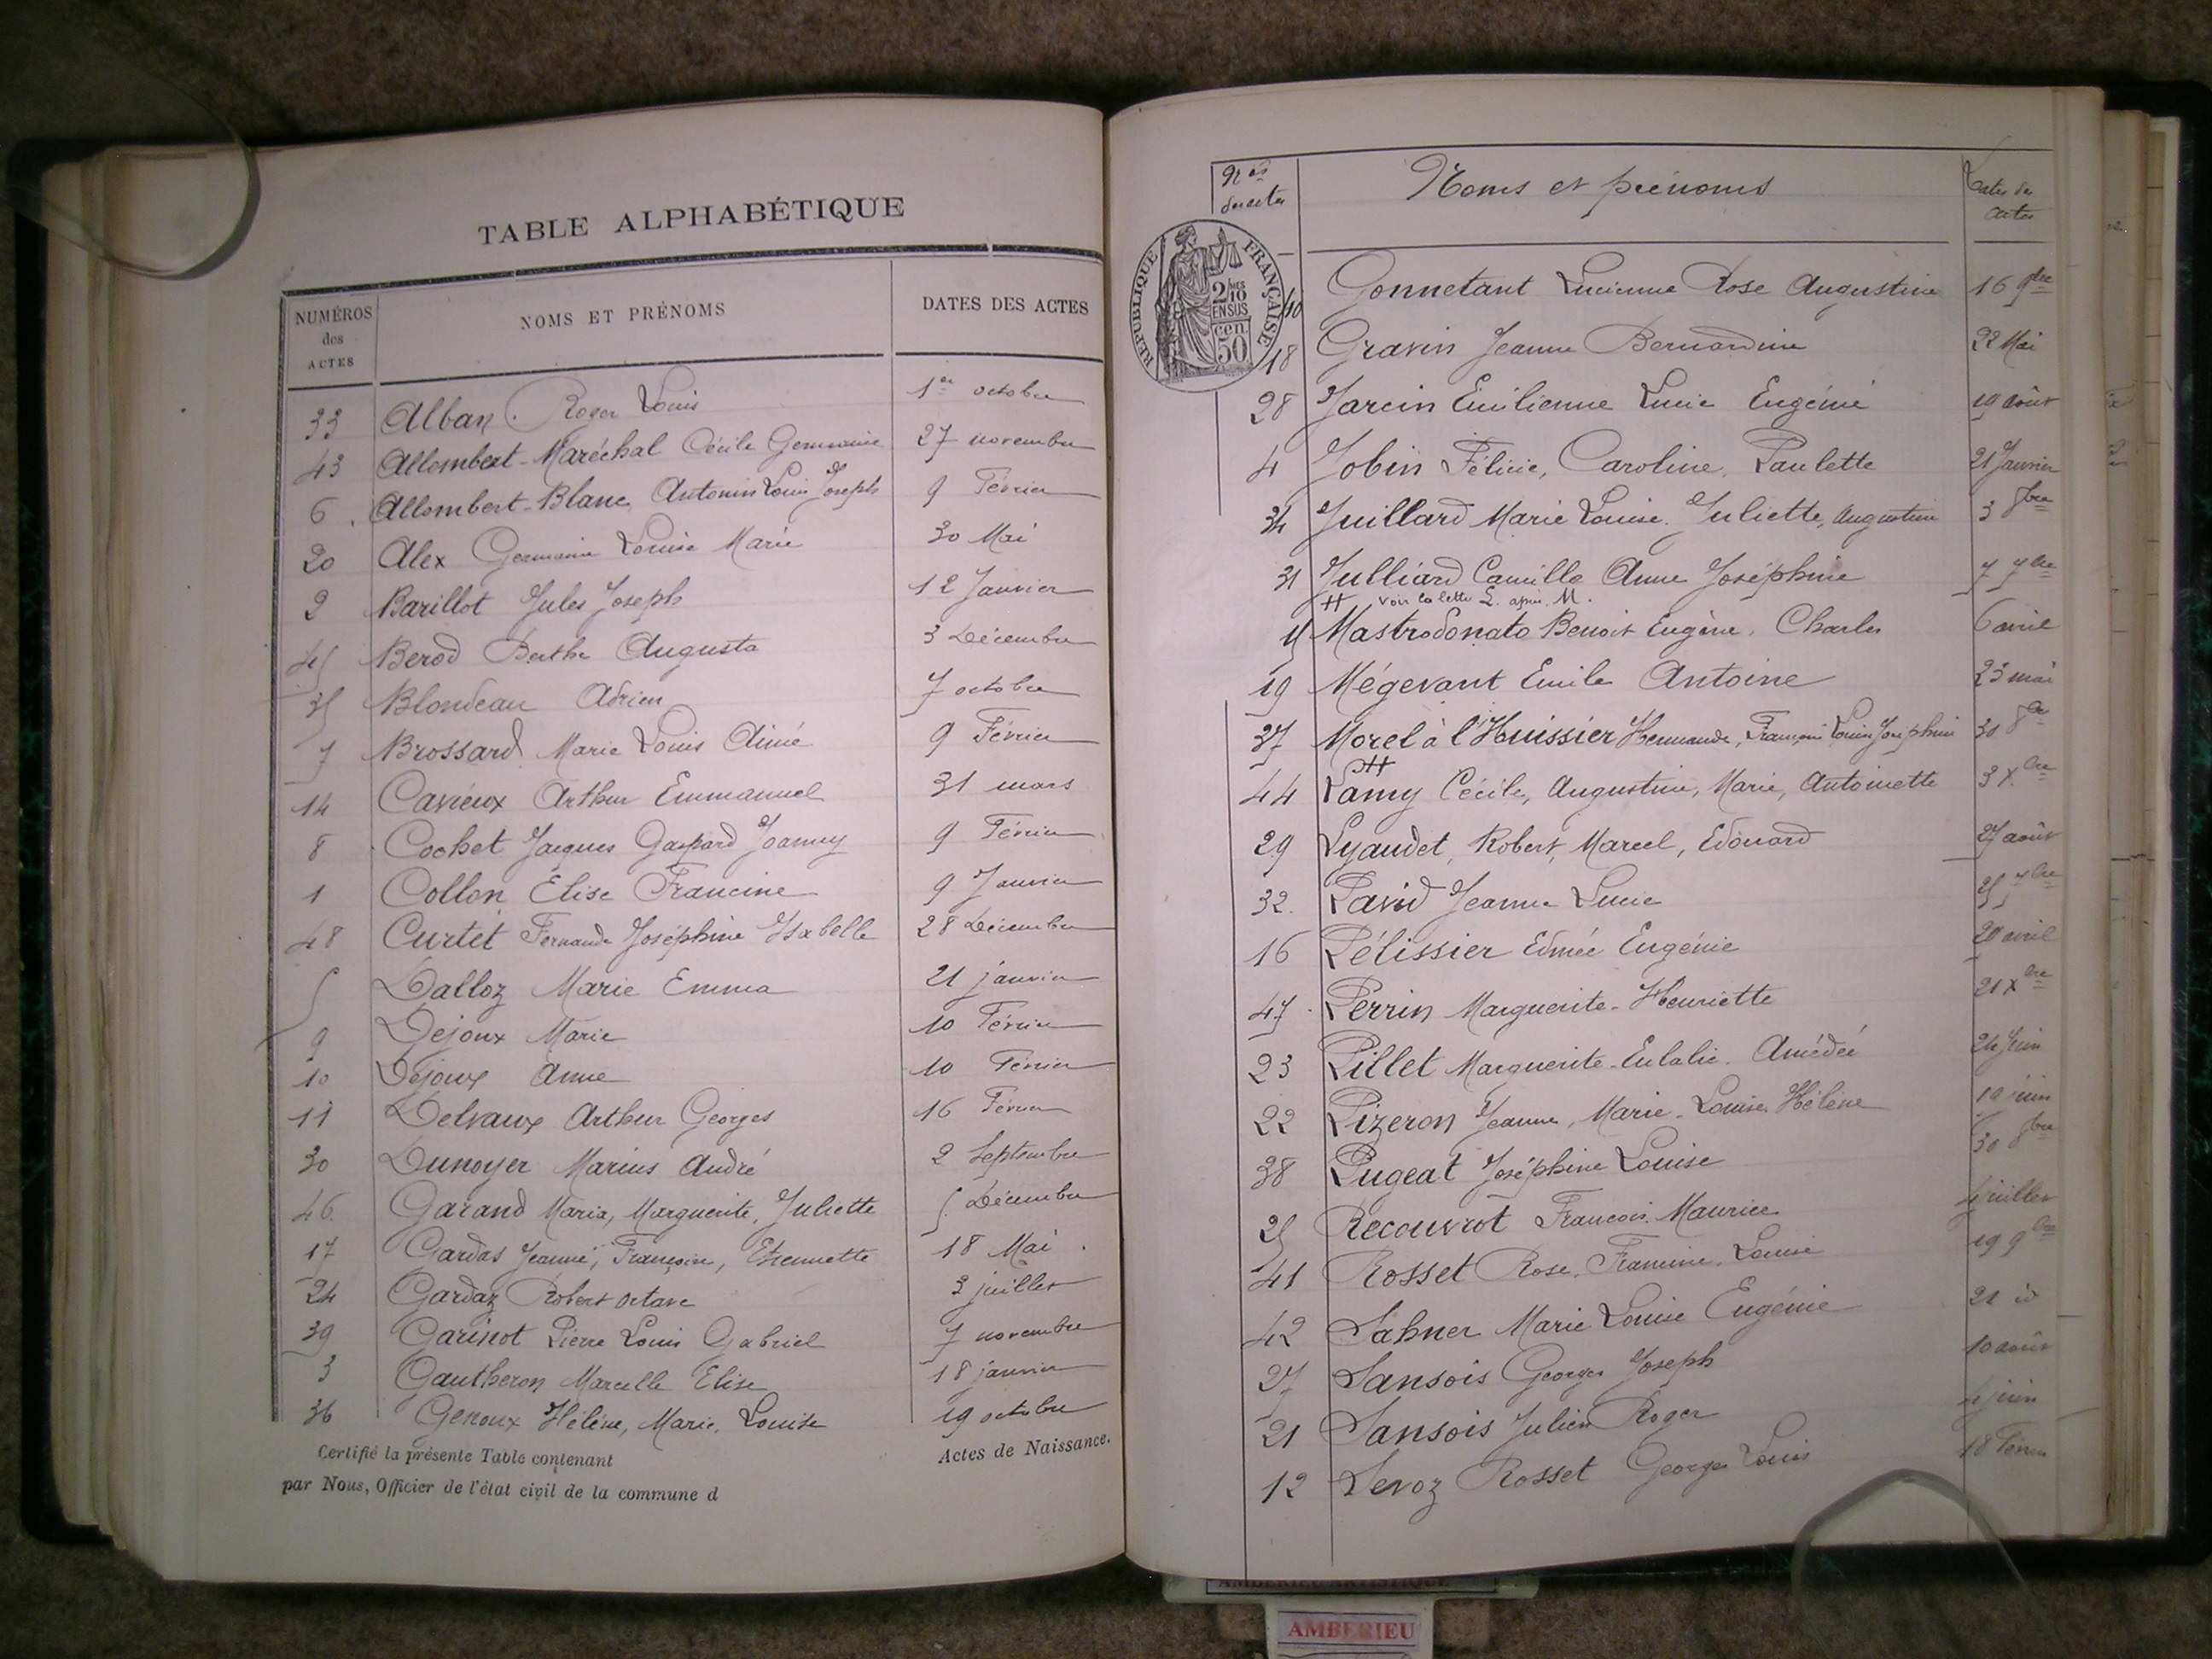 TABLE ALPHABÉTIQUE
NUMÉROS des ACTES NOMS ET PRÉNOMS DATES DES ACTES
33 Alban Roger Louis 1er octobre
43 Allombert-Maréchal Cécile Germaine 27 novembre
6 Allombert-Blanc Antonin Louis Joseph 9 Février
20 Alex Germaine Louise Marie 30 Mai
2 Barillot Jules Joseph 12 Janvier
45 Berod Berthe Augusta 3 Décembre
35 Blondeau Adrien 7 octobre
7 Brossard Marie Louis Aimé 9 Février
14 Cavieux Arthur Emmanuel 31 mars
8 Cochet Jacques Gaspard Joanny 9 Février
1 Collon Élise Francine 9 Janvier
48 Curtet Fernande Joséphine Isabelle 28 Décembre
5 Dalloz Marie Emma 21 janvier
9 Dejoux Marie 10 Février
10 Dejoux Anne 10 Février
11 Delvaux Arthur Georges 16 Février
30 Dunoyer Marius André 2 Septembre
46 Garand Maria, Marguerite, Juliette 5 Décembre
17 Gardas Jeanne, Françoise, Etiennette 18 Mai
24 Gardaz Robert Octave 3 juillet
39 Garinot Pierre Louis Gabriel 7 novembre
3 Gautheron Marcelle Elise 18 janvier
36 Genoux Hélène, Marie, Louise 19 octobre
Certifié la présente Table contenant Actes de Naissance.
par Nous, Officier de l'état civil de la commune d
Nos des actes Noms et prénoms Dates des actes
RÉPUBLIQUE FRANÇAISE
2/10 EN SUS
cen. 50
40 Gonnetant Lucienne Rose Augustine 16 9bre
18 Gravin Jeanne Bernardine 22 Mai
28 Jarcin Emilienne Lucie Eugénie 19 août
4 Jobin Félicie, Caroline, Paulette 21 Janvier
34 Juillard Marie Louise Juliette, Augustine 3 8bre
31 Julliard Camille Anne Joséphine 7 7bre
# voir la lettre L. après M.
15 Mastrodonato Benoit Eugène, Charles 6 avril
19 Mégevant Emile Antoine 23 mai
37 Morel à l'Huissier Hermande, Louise Joséphine 30 8bre
#
44 Lamy Cécile, Augustine, Marie, Antoinette 3 Xbre
29 Lyaudet, Robert, Marcel, Edouard 27 août
32 Pavid Jeanne Lucie 25 7bre
16 Pélissier Edmée Eugénie 20 avril
47 Perrin Marguerite-Henriette 21 Xbre
23 Pillet Marguerite-Eulalie Amédée 24 Juin
22 Pizeron Jeanne, Marie-Louise Hélène 19 juin
38 Pugeat Joséphine Louise 30 8bre
25 Recouvrot François Maurice 4 juillet
41 Rosset Rose, Francine, Louise 19 9bre
42 Sahner Marie Louise Eugénie 21 id
27 Sansois Georges Joseph 10 août
21 Sansois Julien Roger 4 juin
12 Sevoz Rosset Georges Louis 18 Février
AMBERIEU ARTISTIQUE
AMBERIEU